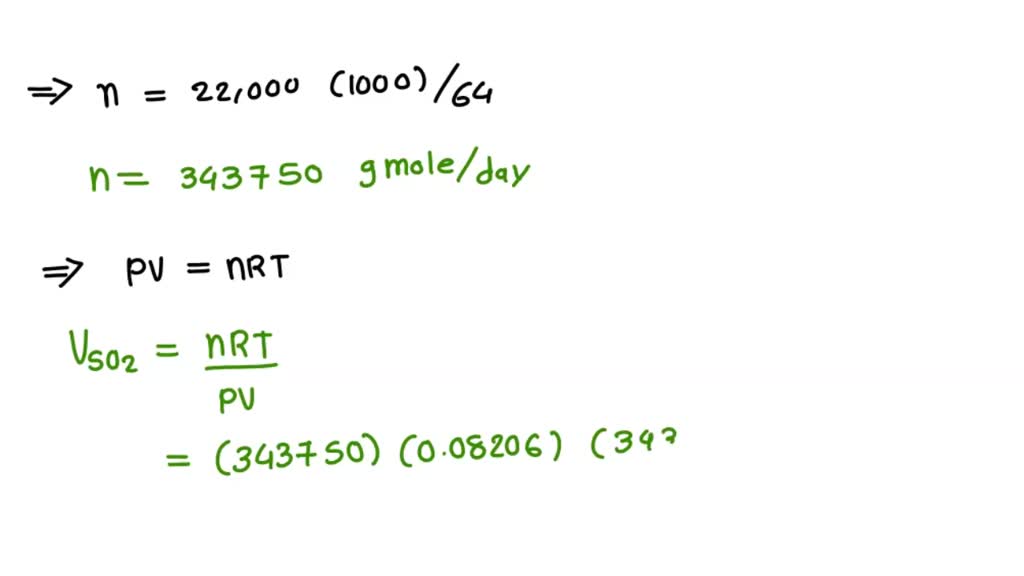 ⇒ n = 22,000 (1000)/64
n = 343750 gmole/day
⇒ PV = nRT
V_SO2 = nRT/PV
= (343750) (0.08206) (34